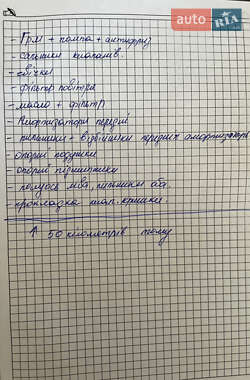 auto RIA
- Грм + помпа + антифриз
- сальники клапанів.
- свічки
- фільтр повітря
- масло + фільтр
- Амортизатори передні
- пильники + відбійники передніх амортизаторів
- опорні подушки
- опорні підшипники
- полуось ліва, пильники оба.
- прокладка клап. кришки.
↑ 50 кілометрів тому